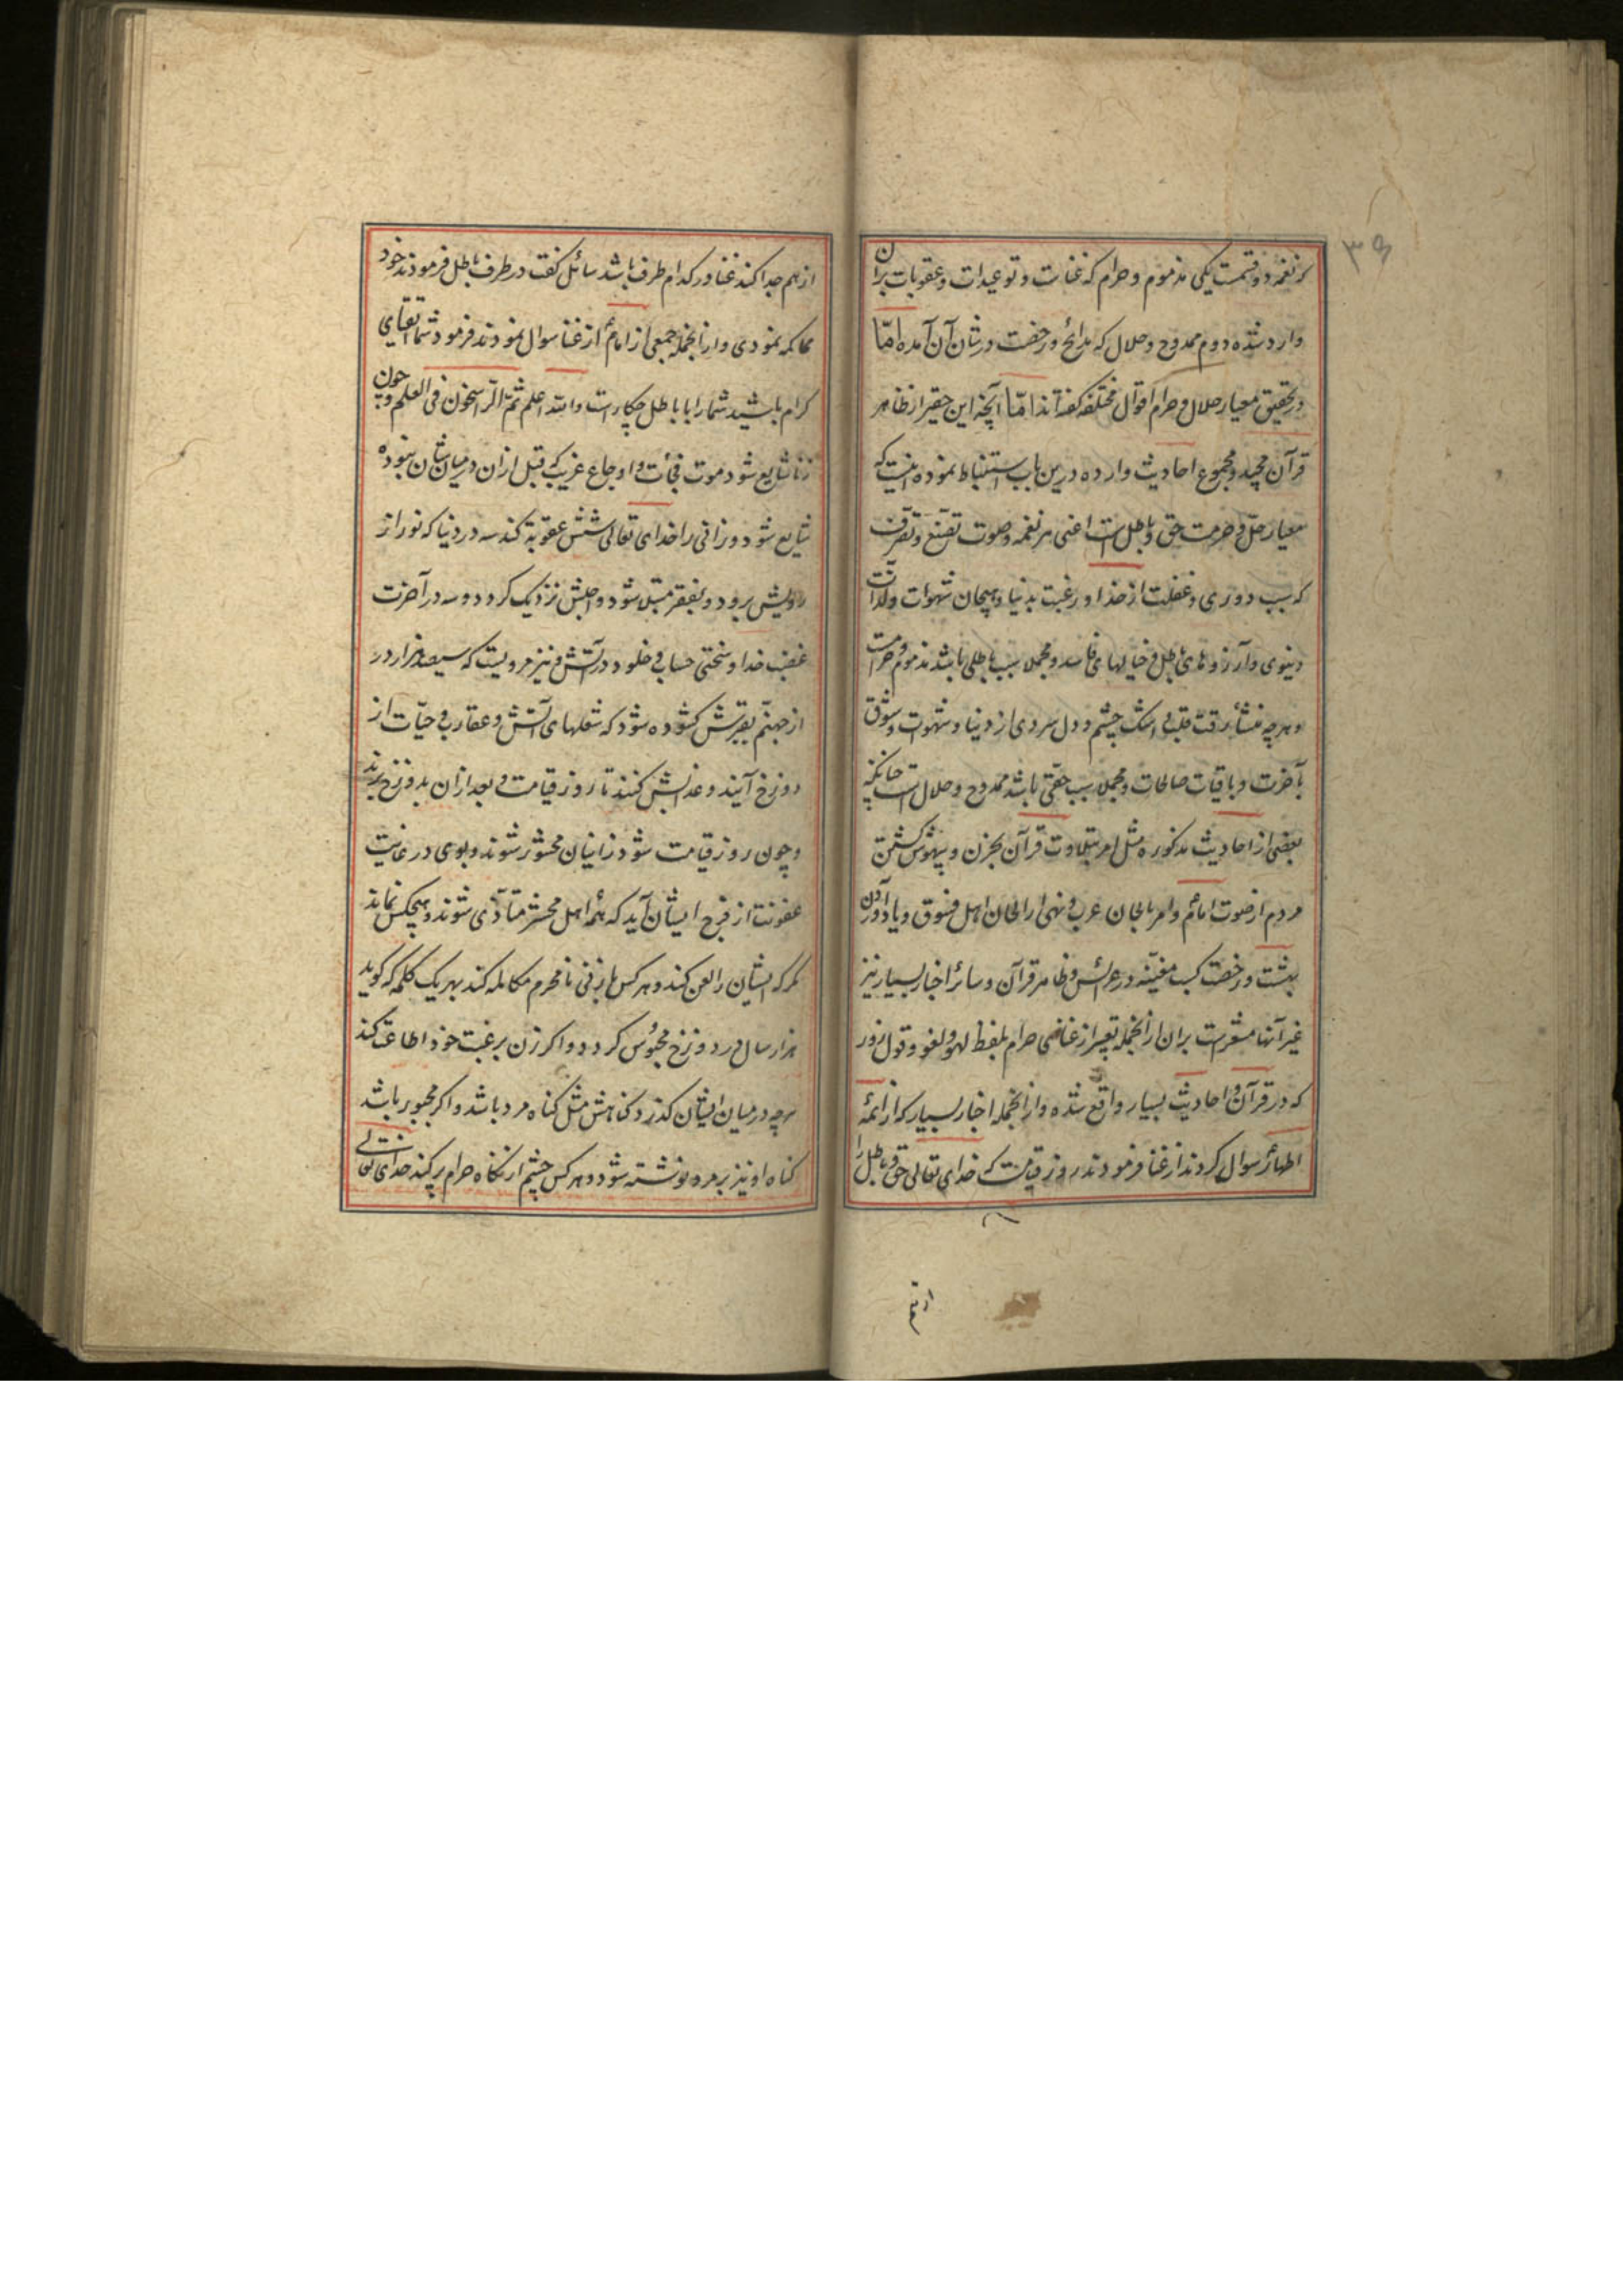 ۳۹
که نغمه دو قسمست یکی مذموم و حرام که غناست و توعیدات و عقوبات بر آن
وارد شده دوم ممدوح و حلال که مدائح و رخصت در شان آن آمده امّا
در تحقیق معیار حلال و حرام اقوال مختلفه گفته‌اند امّا آنچه این حقیر از ظاهر
قرآن مجید و مجموع احادیث وارده درین باب استنباط نموده اینست که
معیار حلّ و حرمت حق و باطل است اعنی هر نغمه و صوت تصنّع و تصرّف
که سبب دوری و غفلت از خدا و رغبت بدنیا و هیجان شهوات و لذات
دنیوی و آرزوهای باطل و خیالهای فاسد و مجملا سبب باطلی باشد مذموم و حرامست
و هرچه منشأ رقت قلب و اشک چشم و دل سردی از دنیا و شهوات و شوق
بآخرت و باقیات صالحات و مجملا سبب حقی باشد ممدوح و حلال است چنانکه
بعضی از احادیث مذکوره مثل امر بتلاوت قرآن بحزن و بیهوش گشتن
مردم از صوت امامؑ و امر بالحان عرب و نهی از الحان اهل فسوق و یاد آوردن
بهشت و رخصت کسب مغنّیه در عرائس و ظاهر قرآن و سائر اخبار بسیار نیز
غیر آنها مشعرست بران ازانجمله تعبیر از غنای حرام بلفظ لهو و لغو و قول زور
که در قرآن و احادیث بسیار واقع شده و ازانجمله اخبار بسیار که از ائمهٔ
اطهارؑ سوال کردند از غنا فرمودند روز قیامت که خدای تعالی حق و باطل را
از هم
از هم جدا کند غنا در کدام طرف باشد سائل گفت در طرف باطل فرمودند خود
محاکمه نمودی و ازانجمله جمعی از امامؑ از غنا سوال نمودند فرمود شما اتقیای
کرام باشید شما را با باطل چکار است والله اعلم ثمّ الرّاسخون فی العلم و چون
زنا شایع شود موت فجأت و اوجاع غریبه که قبل ازان در میان شان نبوده
شایع شود و زانی را خدای تعالی شش عقوبة کند سه در دنیا که نور از
رویش برود و بفقر مبتلا شود و اجلش نزدیک گردد و سه در آخرت
غضب خدا و سختی حساب و خلود در آتش و نیز مرویست که سیصد هزار در
از جهنّم بقبرش گشوده شود که شعلهای آتش و عقارب و حیّات از
دوزخ آیند و عذابش کنند تا روز قیامت و بعد ازان بدوزخ برند
و چون روز قیامت شود زانیان محشور شوند و بوی در غایت
عفونت از فرج ایشان آید که همه اهل محشر متأذّی شوند و هیچکس نماند
مگر که ایشان را لعن کند و هرکس با زنی نامحرم مکالمه کند بهر یک کلمه که گوید
هزار سال در دوزخ محبوس گردد و اگر زن برغبت خود اطاعت کند
هرچه در میان ایشان گذرد گناهش مثل گناه مرد باشد و اگر مجبور باشد
گناه او نیز بمرد نوشته شود و هر کس چشم از نگاه حرام پر کند خدای تعالی